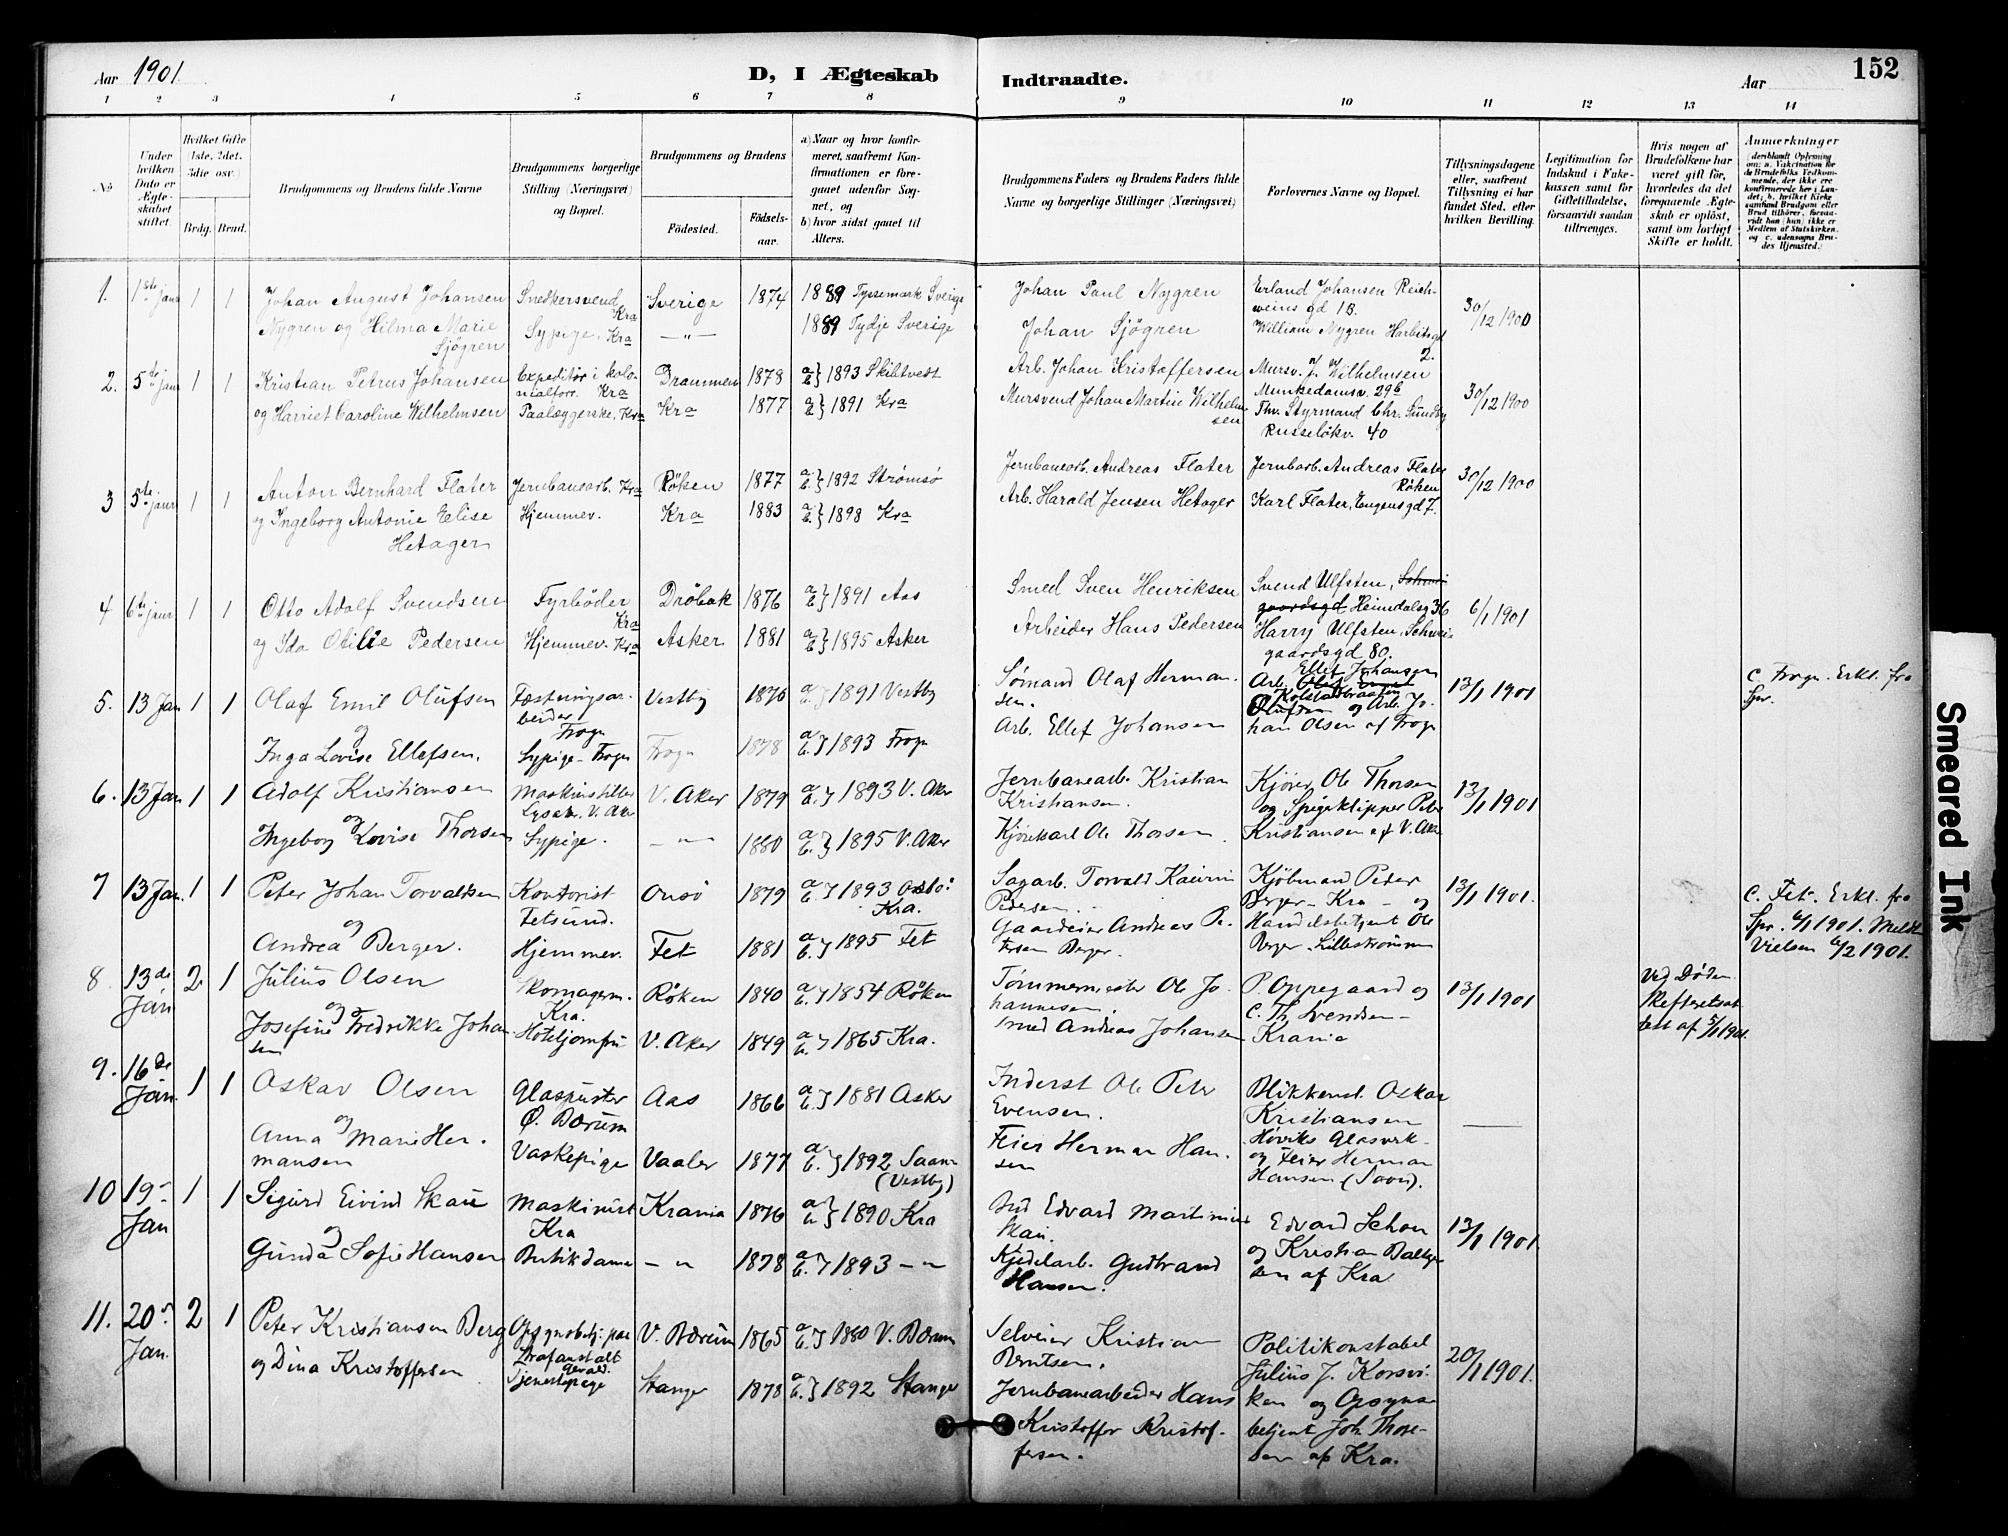 Aar 1901. D, I Ægteskab Indtraadte. Aar 152
1 2 3 4 5 6 7 8 9 10 11 12 13 14
No
Under hvilken Dato er Ægteskabet stiftet.
Hvilket Gifte (1ste, 2det, 3die osv.)
Brdg. Brud.
Brudgommens og Brudens fulde Navne
Brudgommens borgerlige Stilling (Næringsvei) og Bopæl.
Brudgommens og Brudens
Fødested.
Fødsels-aar.
a) Naar og hvor konfirmeret, saafremt Konfirmationen er foregaaet udenfor Sognet, og
b) hvor sidst gaaet til Alters.
Brudgommens Faders og Brudens Faders fulde Navne og borgerlige Stillinger (Næringsvei)
Forlovernes Navne og Bopæl.
Tillysningsdagene eller, saafremt Tillysning ei har fundet Sted, efter hvilken Bevilling.
Legitimation for Indskud i Enkekassen samt for Giftetilladelse, forsaavidt saadan tiltrænges.
Hvis nogen af Brudefolkene har været gift før, hvorledes da det foregaaende Ægteskab er opløst, samt om lovligt Skifte er holdt.
Anmerkninger
(deriblandt Oplysning om: a. Vakcination for de Brudefolks Vedkommende, der ikke ere konfirmerede her i Landet; b. hvilket Kirkesamfund Brudgom eller Brud tilhører, forsaavidt han (hun) ikke er Medlem af Statskirken, og c. udensogns Brudes Hjemsted.)
1. 1ste janr 1 1 Johan August Johansen Snedkersvend Kra Sverige 1874 1889 Tyssemark Sverige Johan Paul Nygren Erland Johansen Reichweins gd 1B. 30/12 1900
Nygren og Hilma Marie Sjögren Sypige, Kra —"— 1889 Tydje Sverige Johan Sjögren William Nygren Harbitzgd 2.
2. 5te janr 1 1 Kristian Petrus Johansen Expeditør i kolonialforr. Kra Drammen 1878 a b} 1893 Skibtvedt Arb. Johan Kristoffersen Mursv. J. Wilhelmsen Munkedamsv. 29b 30/12 1900
og Harriet Caroline Wilhelmsen Paalæggerske, Kra Kra 1877 a b} 1891 Kra Mursvend Johan Martin Wilhelmsen Thv. Styrmand Chr. Sundby Russeløkv. 40
3 5te janr 1 1 Anton Bernhard Flater Jernbanearb. Kra Røken 1877 a b} 1892 Strømsø Jernbanearb. Andreas Flater Jernbarb. Andreas Flater Røken 30/12 1900
og Ingeborg Antonie Elise Hetager Hjemmev. Kra 1883 a b} 1898 Kra Arb. Harald Jensen Hetager Karl Flater, Eugensgd 7.
4 6te janr 1 1 Otto Adolf Svendsen Fyrbøder Kra Drøbak 1876 a b} 1891 Aas Smed Sven Henriksen Svend Ulfsten, Schweigaardsgd Heimdalsg 36 6/1 1901
og Ida Otilie Pedersen Hjemmev. Kra Asker 1881 a b} 1895 Asker Arbeider Hans Pedersen Harry Ulfsten, Schweigaardsgd 80.
5. 13 Jan 1 1 Olaf Emil Olufsen Fæstningsarbeider Frogn Vestby 1876 a b} 1891 Vestby Sømand Olaf Hermansen. Arb. Ellef Johansen og Arb. Johan Olsen af Frogn 13/1 1901 c Frogn. Erkl. fra Spr.
og
Inga Lovise Ellefsen. Sypige - Frogn Frogn 1878 a b} 1893 Frogn Arb. Ellef Johansen
6. 13 Jan 1 1 Adolf Kristiansen Maskinstiller Lysaker. V. Aker V. Aker 1879 a b} 1893 V. Aker Jernbanearb. Kristian Kristiansen. Kjører Ole Thorsen og Spigerklipper Peter Kristiansen af V. Aker 13/1 1901
og
Ingeborg Lovise Thorsen Sypige. — " — 1880 a b} 1895 V. Aker Kjørekarl Ole Thorsen.
7 13 Jan. 1 1 Peter Johan Torvaldsen Kontorist Fetsund. Onsö 1879 a b} 1893 Oslo: Kra. Sagarb. Torvald Pedersen. Kjöbmand Peder Berger - Kra - og Handelsbetjent Ole Berger - Lillestrømmen 13/1 1901. c. Fet. Erkl. fra Spr. 4/1 1901. Meldt Vielsen 6/2 1901.
og
Andrea Berger. Hjemmev. Fet 1881 a b} 1895 Fet Gaardeier Andreas Petersen Berger.
8 13de Jan 2 1 Julius Olsen Skomagerm. Kra. Røken 1840 a b} 1854 Røken Tømmermester Ole Johannesen. P. Oppegaard og C. Th. Svendsen - Krania 13/1 1901 Ved Døden Skifteretsattest af 5/1 1901.
og
Josefine Fredrikke Johansen Hoteljomfru V. Aker 1849 a b} 1865 Kra. Smed Andreas Johansen
9. 16de Jan 1 1 Oskar Olsen Glaspuster Ø. Bærum Aas 1866 a b} 1881 Asker Inderst Ole Peter Evensen. Blikkensl. Oskar Kristiansen Høviks Glasverk - og Feier Herman Hansen (Soon). —
og
Anna Marie Hermansen Vaskepige Vaaler 1877 a b} 1892 Saaner (Vestby) Feier Herman Hansen
10 19 Jan 1 1 Sigurd Eivind Skau Maskinist Kra Krania 1876 a b} 1890 Kra Edvard Martinius Skau. Edvard Schou og Kristian af Kra 13/1 1901.
og
Gunda Sofie Hansen Butikdame — " 1878 a b} 1893 — " Kjedelarb. Gudbrand Hansen.
11. 20 Jan. 2 1 Peter Kristiansen Berg Opsynsbetj. paa Strafanstalt V. Bærum 1865 a b} 1880 V. Bærum Selveier Kristian Berntsen. Politikonstabel Julius J. Korsviken og Opsynsbetjent Joh. Thoresen af Kra. 20/1 1901.
og Dina Kristoffersen Tjenestepige Stange 1878 a b} 1892 Stange Jernbanearbeider Hans Kristoffer Kristoffersen.
Smeared Ink